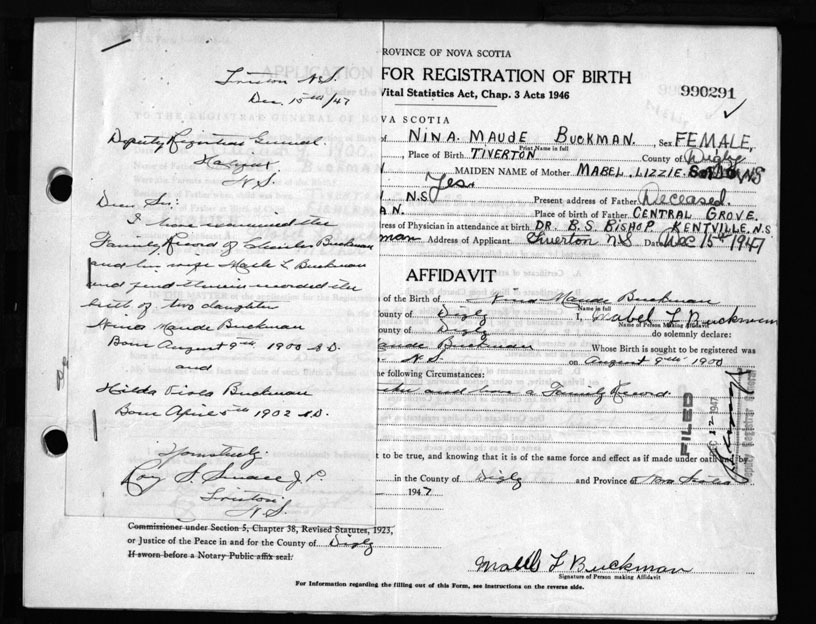 Tiverton N.S.
Dec 15th/47
Deputy Registrar General
Halifax
N.S.
Dear Sir:
I have examined the
Family Record of Charles Buckman
and his wife L Buckman
and find therein recorded the
birth of two daughter
Nina Maude Buckman
Born August 9th 1900 A.D.
and
Hilda Viola Buckman
Born April 5th 1902 A.D.
Yours truly
J.P.
Tiverton
N.S.
PROVINCE OF NOVA SCOTIA
APPLICATION FOR REGISTRATION OF BIRTH
Vital Statistics Act, Chap. 3 Acts 1946
990291
VA SCOTIA
of NINA. MAUDE BUCKMAN. , Sex FEMALE,
Print Name in full
, Place of Birth TIVERTON County of Digby
MAIDEN NAME of Mother MABEL LIZZIE
Yes.
N.S Present address of Father Deceased.
AN. Place of birth of Father CENTRAL GROVE.
ress of Physician in attendance at birth DR. B.S. BISHOP KENTVILLE. N.S
man Address of Applicant Tiverton N.S Date Dec 15th 1947
AFFIDAVIT
of the Birth of Nina Maude Buckman
Name in full
ounty of Digby I, Mabel L Buckman
Name of Person Making Affidavit
ounty of Digby do solemnly declare:
aude Buckman Whose Birth is sought to be registered was
N.S. on August 9th 1900
he following Circumstances:
and have a Family Record.
FILED
DEC 22 1947
Deputy Registrar General
t to be true, and knowing that it is of the same force and effect as if made under oath and by
in the County of Digby and Province of Nova Scotia
1947
Commissioner under Section 5, Chapter 38, Revised Statutes, 1923,
or Justice of the Peace in and for the County of Digby
If sworn before a Notary Public affix seal.
Mabel L Buckman
Signature of Person making Affidavit
For Information regarding the filling out of this Form, see instructions on the reverse side.